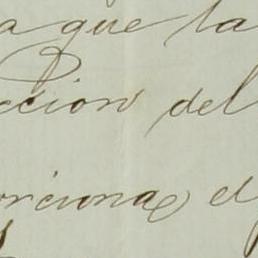 a que la
ccion del
orciona el